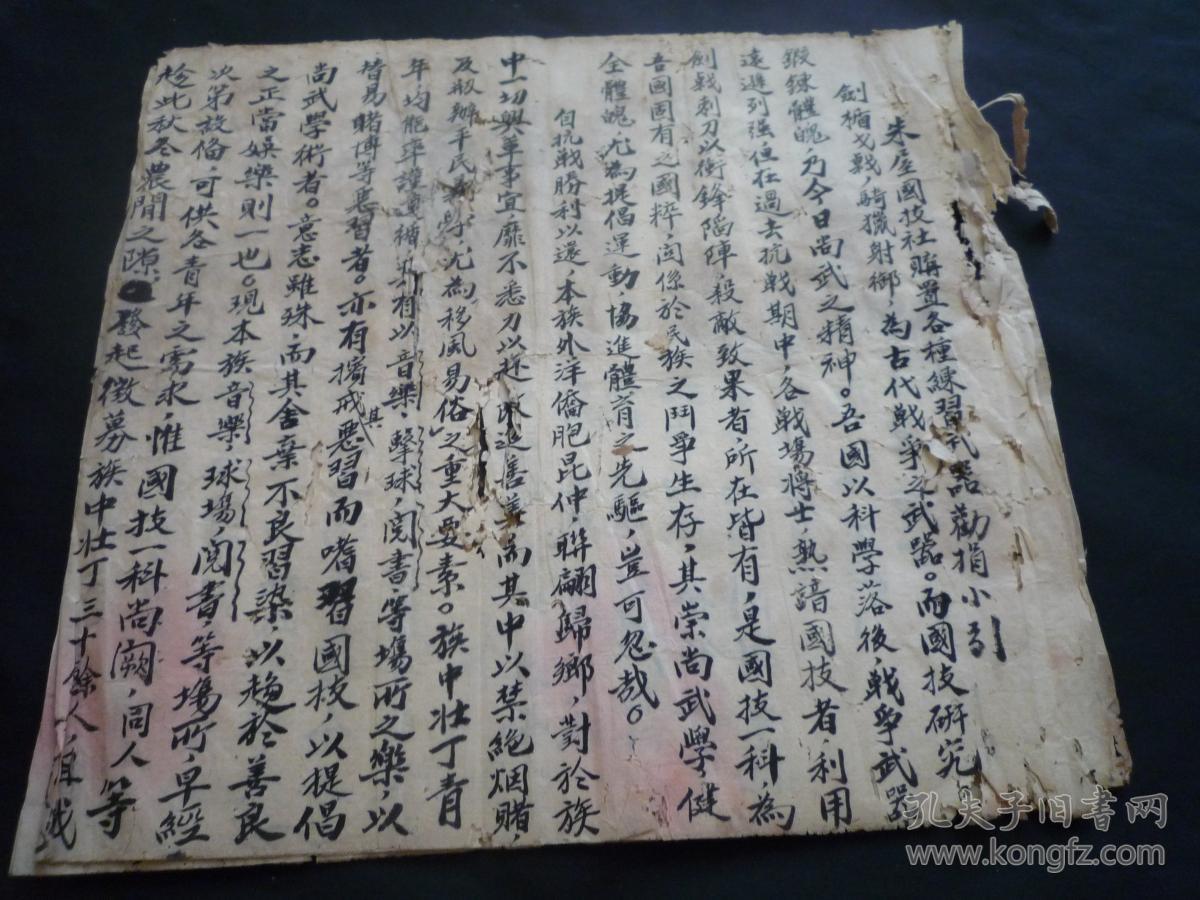 朱屋國技社購置各種練習武器勸捐小引
劍楯戈戟，騎獵射御，為古代戰爭之武器。而國技研究
鍛鍊體魄，乃今日尚武之精神。吾國以科學落後，戰爭武器
遠遜列强，但在過去抗戰期中，各戰場將士，熟諳國技者，利用
劍戟刺刀以衝鋒陷陣，殺敵致果者，所在皆有，是國技一科，為
吾國國有之國粹，関係於民族之鬥爭生存，其崇尚武學，健
全體魄，尤為提倡運動協進體育之先驅，豈可忽哉。
自抗戰勝利以還，本族外洋僑胞昆仲，聯翩歸鄉，對於族
中一切興革事宜，靡不悉力以赴，改進善美，而其中以禁絶烟賭，
及創辦平民學，尤為移風易俗之重大要素。族中壯丁青
年，均能率謹遵循，并有以音樂，擊球，閱書，等場所之樂，以
替易賭博等惡習者。亦有擯戒其惡習而嗜習國技，以提倡
尚武學術者。意志雖殊，而其舍棄不良習染，以趨於善良
之正當娛樂則一也。現本族音樂，球場，閱書，等場所，早經
次第設俻，可供各青年之需求，惟國技一科尚闕，同人等
趁此秋冬農閒之隙，發起徵募族中壯丁三十餘人，組織
孔夫子旧书网
www.kongfz.com